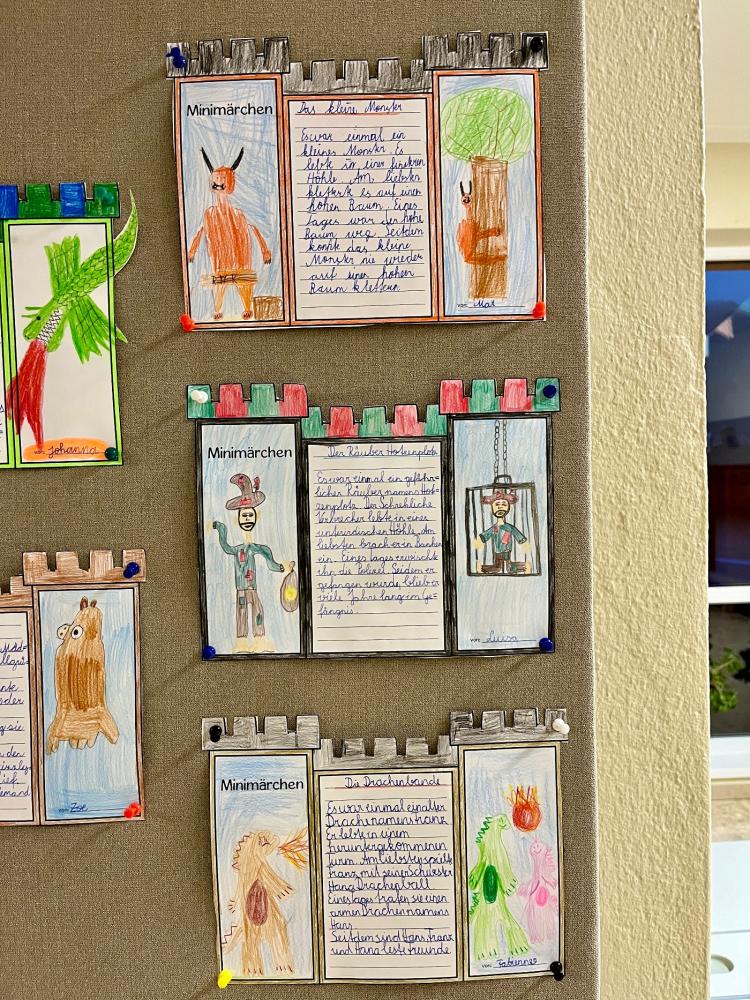 Minimärchen
Das kleine Monster
Es war einmal ein
kleines Monster. Es
lebte in einer finsteren
Höhle. Am liebsten
kletterte es auf einen
hohen Baum. Eines
Tages war der hohe
Baum weg. Seitdem
konnte das kleine
Monster nie wieder
auf einen hohen
Baum klettern.
von:
Minimärchen
Der Räuber Hotzenplotz
Es war einmal ein gefähr=
licher Räuber namens Hot=
zenplotz. Der Schrekliche
Verbrecher lebte in einer
unterirdischen Höhle. Am
liebsten brach er in Banken
ein. Eines tages erwischte
ihn die Polizei. Seidem er
gefangen wurde, blieb er
viele Jahre lang im Ge=
fängnis.
von: Luisa
Minimärchen
Die Drachenbande
Es war einmal ein alter
Drache namens Franz
Er lebte in einem
heruntergekommenen
Turm. Am liebsten spielte
Franz mit seiner Schwester
Hana Drachenball
Eines tages trafen sie einen
armen Drachen namens
Hans
Seitdem sind Hans, Franz
und Hana beste freunde.
von: Fabienne
von: Johanna
von: Zoe